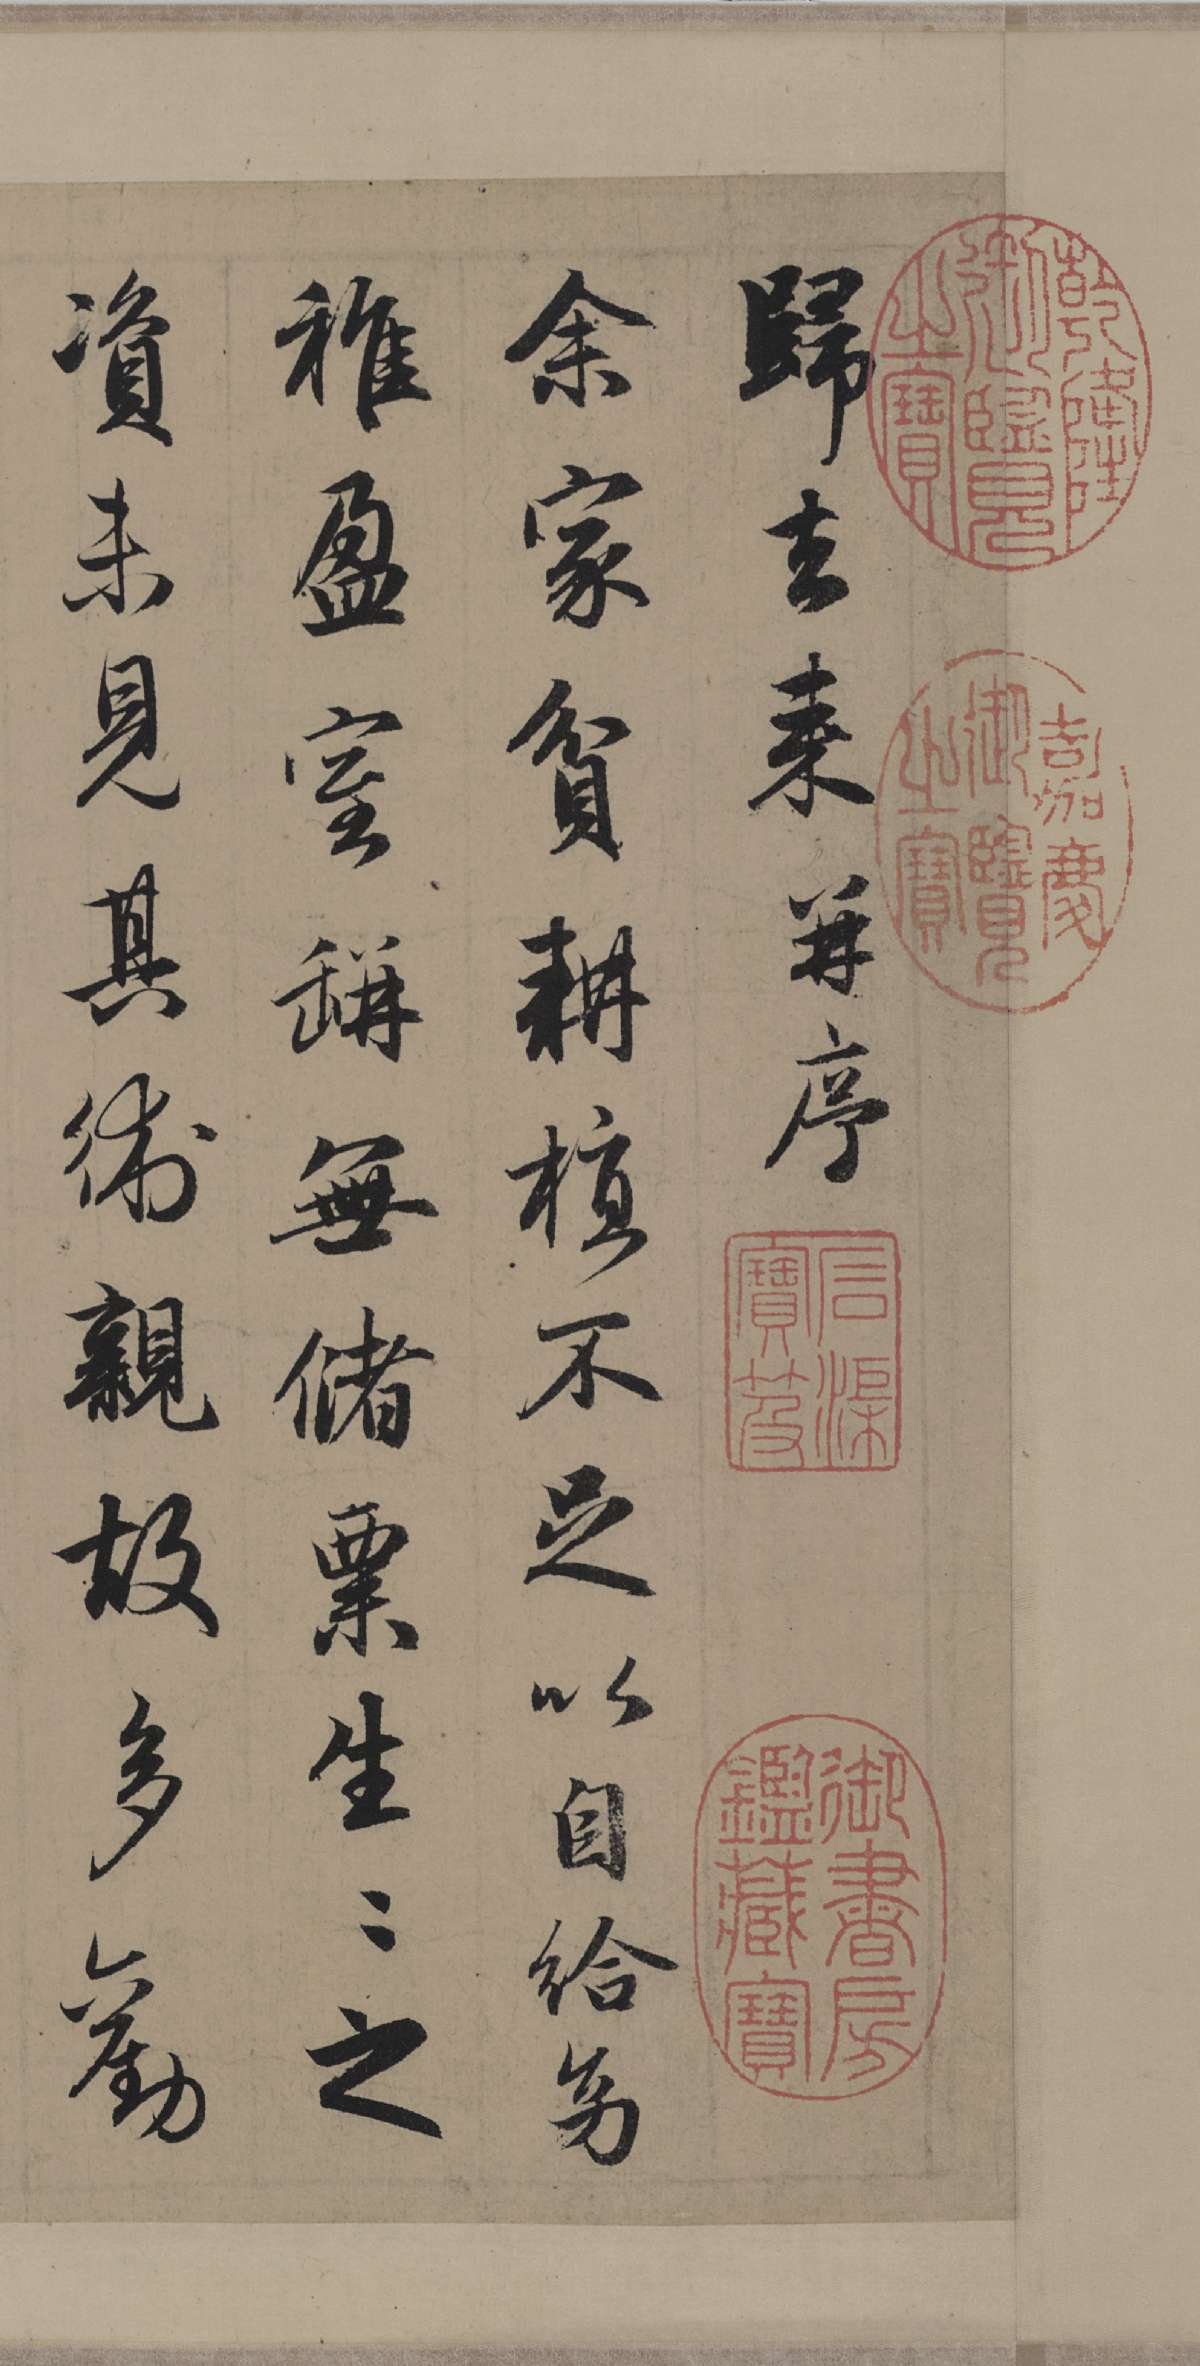 歸去来并序
余家貧耕植不足以自給㓜
稚盈室缾無儲粟生〻之
資未見其術親故多勸
乾隆御覽之寶
嘉慶御覽之寶
石渠寶笈
御書房鑑藏寶